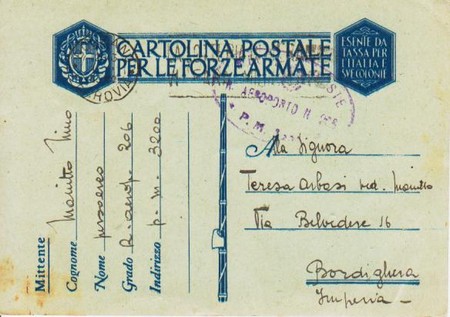 CARTOLINA POSTALE
PER LE FORZE ARMATE
ESENTE DA
TASSA PER
L'ITALIA E
SVE COLONIE
AEROPORTO N.
P. M.
Mittente
Cognome Mainetto Nino
Nome
Grado 206
Indirizzo P. M. 3200
Alla Signora
Teresa ved.
Via Belvedere 16
Bordighera
Imperia